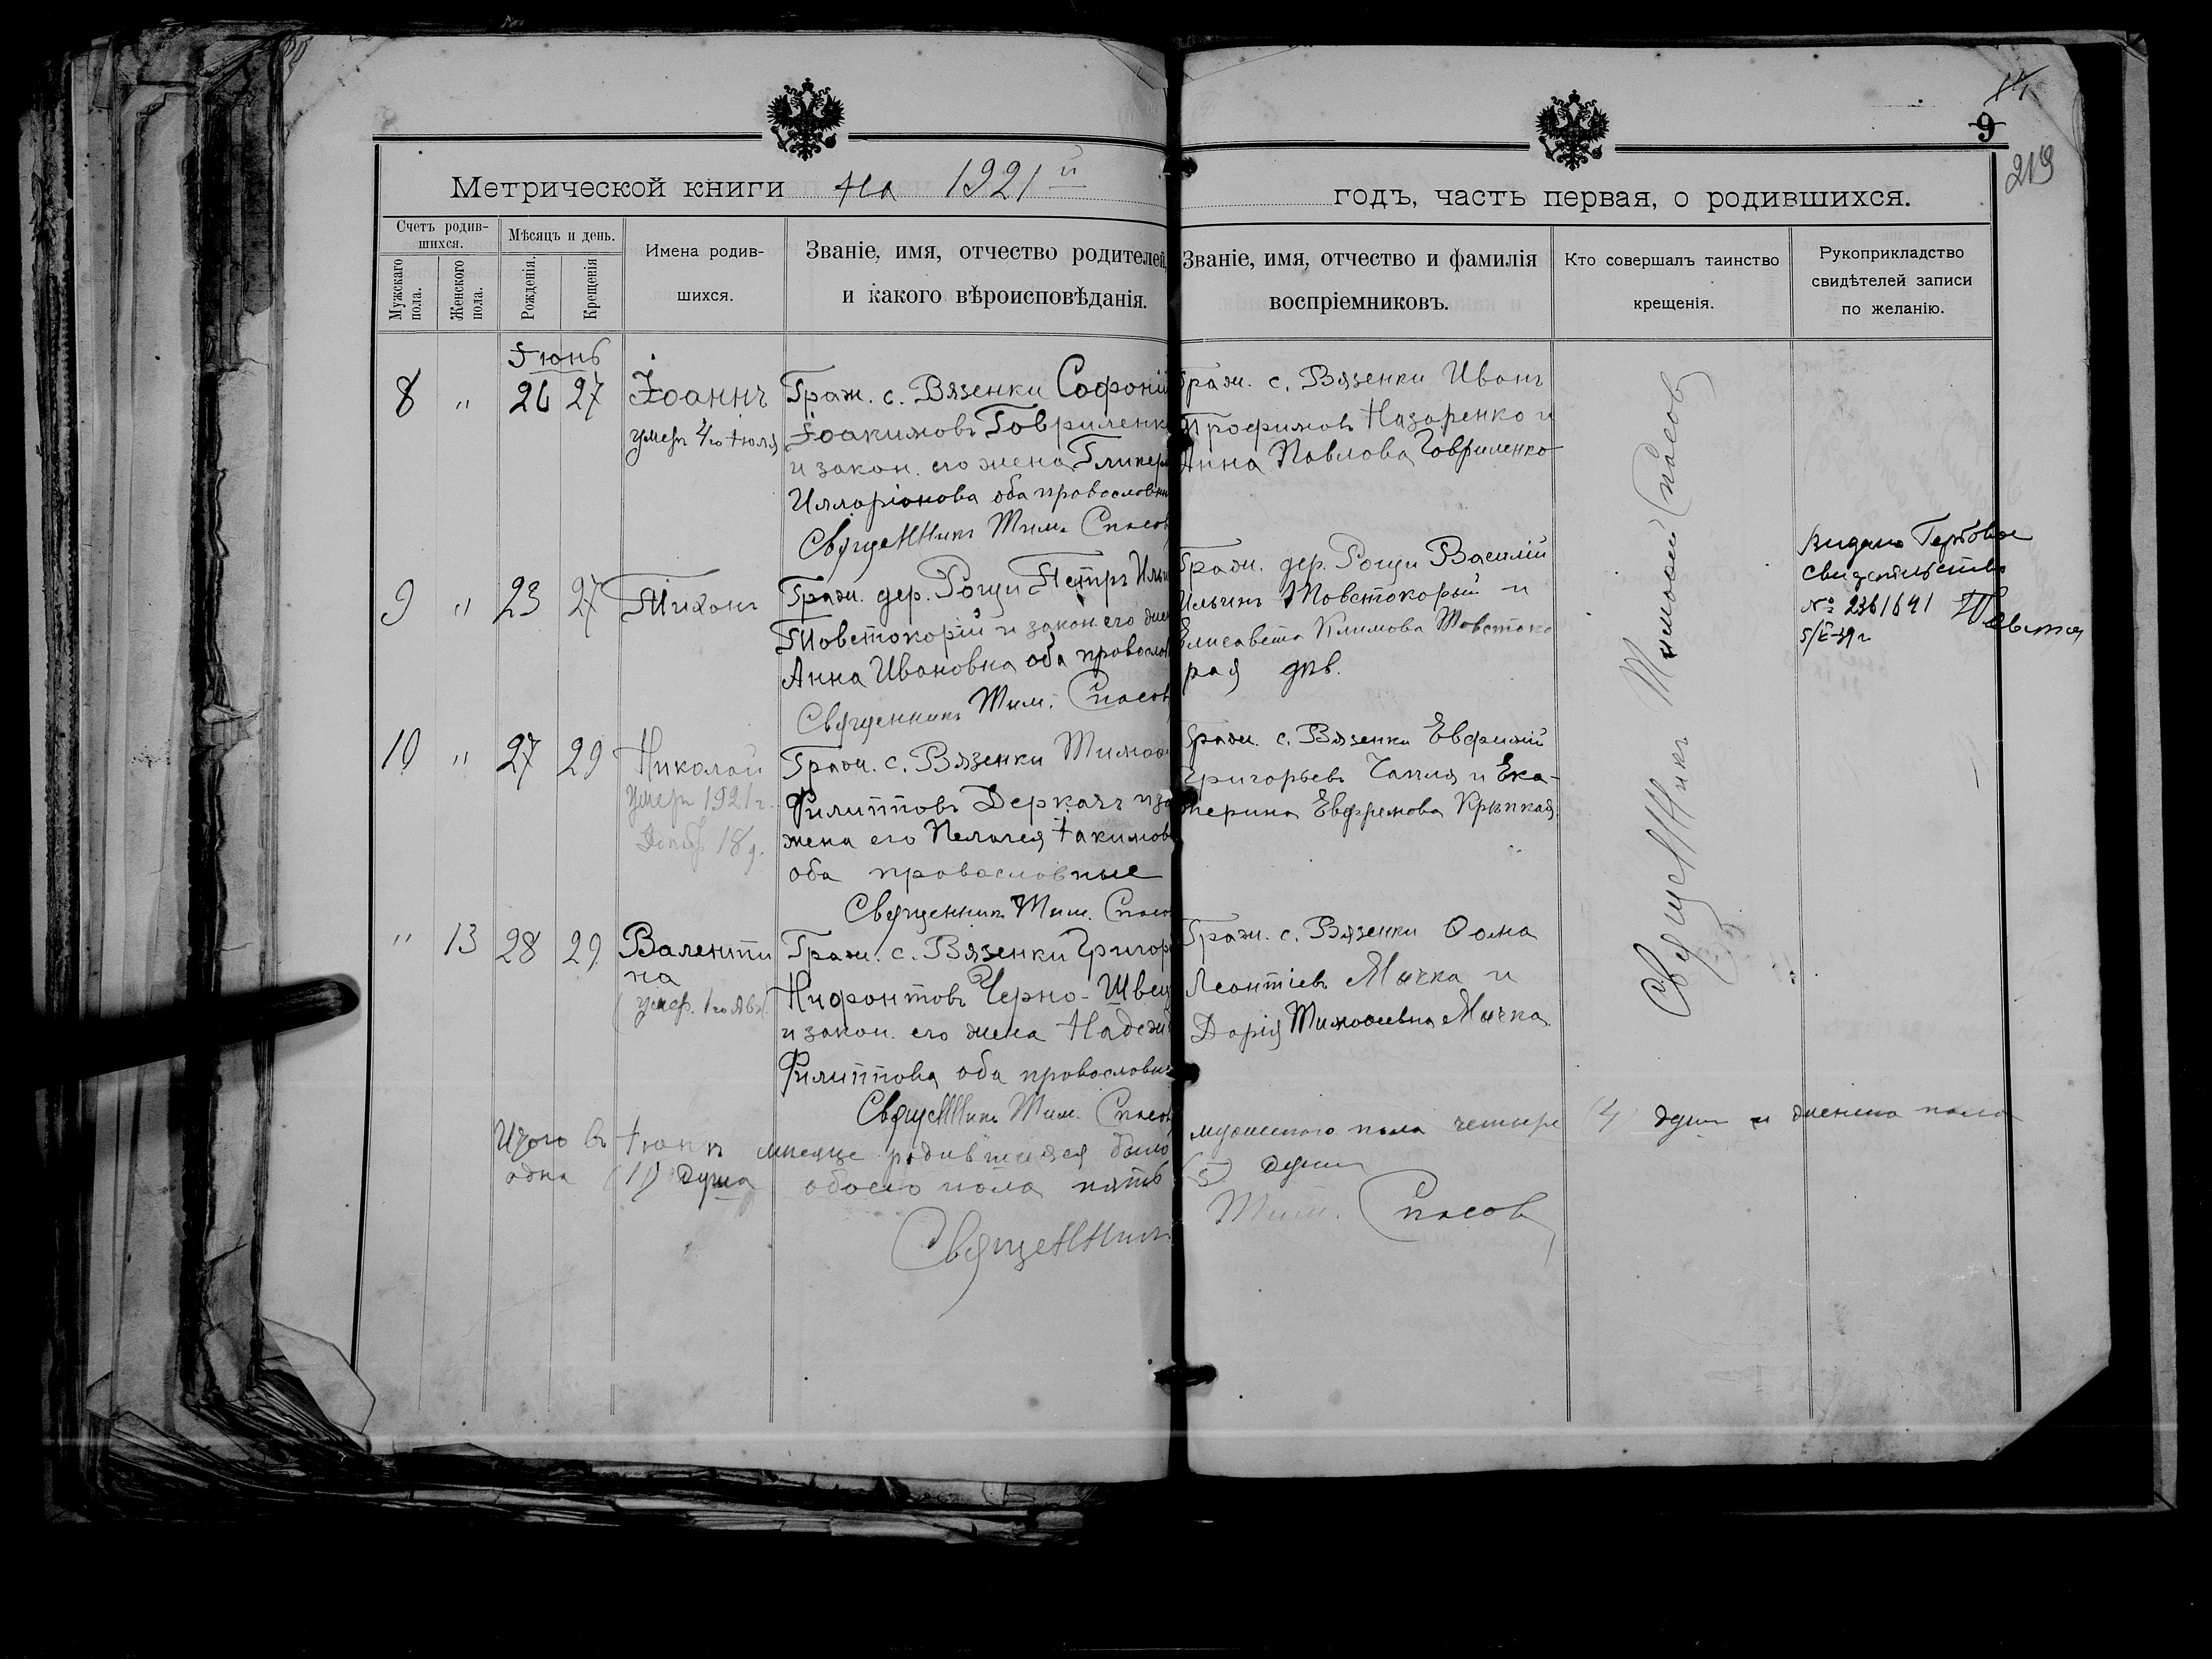 14
9
219
Метрической книги на 1921й
годъ, часть первая, о родившихся.
Счетъ родив-
шихся.
Мужскаго
пола.
Женскаго
пола.
Мѣсяцъ и день.
Рожденія.
Крещенія
Имена родив-
шихся.
Званіе, имя, отчество родителей,
и какого вѣроисповѣданія.
Званіе, имя, отчество и фамилія
воспріемниковъ.
Кто совершалъ таинство
крещенія.
Рукоприкладство
свидѣтелей записи
по желанію.
Іюнь
8 " 26 27 Іоаннъ
умеръ 4го Іюля
Граж. с. Вязенки Софоній
Іоакимовъ Гавриленк
и закон. его жена Гликер
Илларіонова оба православн
Священникъ Тим. Спасов
Граж. с. Вязенки Иванъ
Трофимовъ Назаренко и
Анна Павлова Гавриленко
9 " 23 27 Тихонъ
Граж. дер. Рощи Петръ Ильи
Товстокорій и закон. его жен
Анна Ивановна оба православ
Священникъ Тим. Спасов
Граж. дер. Рощи Василій
Ильинъ Товстокорый и
Елисавета Климова Товстоко
рая дѣв.
Видано Гербовое
свидетельство
№ 2361641
10 " 27 29 Николай
умеръ 1921 г.
18 д.
Граж. с. Вязенки Тимоѳ
Филипповъ Деркачъ и за
жена его Пелагея Іакимов
оба православные
Священникъ Тим. Спасов
Граж. с. Вязенки Евфимій
Григорьевъ Чапля и Ека-
терина Евфремова Крѣпкая
" 13 28 29 Валенти
на
Граж. с. Вязенки Григор
Нифонтовъ Черно-Швец
и закон. его жена Надеж
Филиппова оба православн
Священникъ Тим. Спасов
Граж. с. Вязенки Ѳома
Леонтіевъ Мычка и
Дарія Тимоѳеевна Мычка
Священникъ Тимоѳей Спасов
Итого въ Іюнѣ мѣсяце родившихся было мужеского пола четыре (4) души и женска пола
одна (1) душа обоего пола пять (5) душ
Священникъ Тим. Спасов